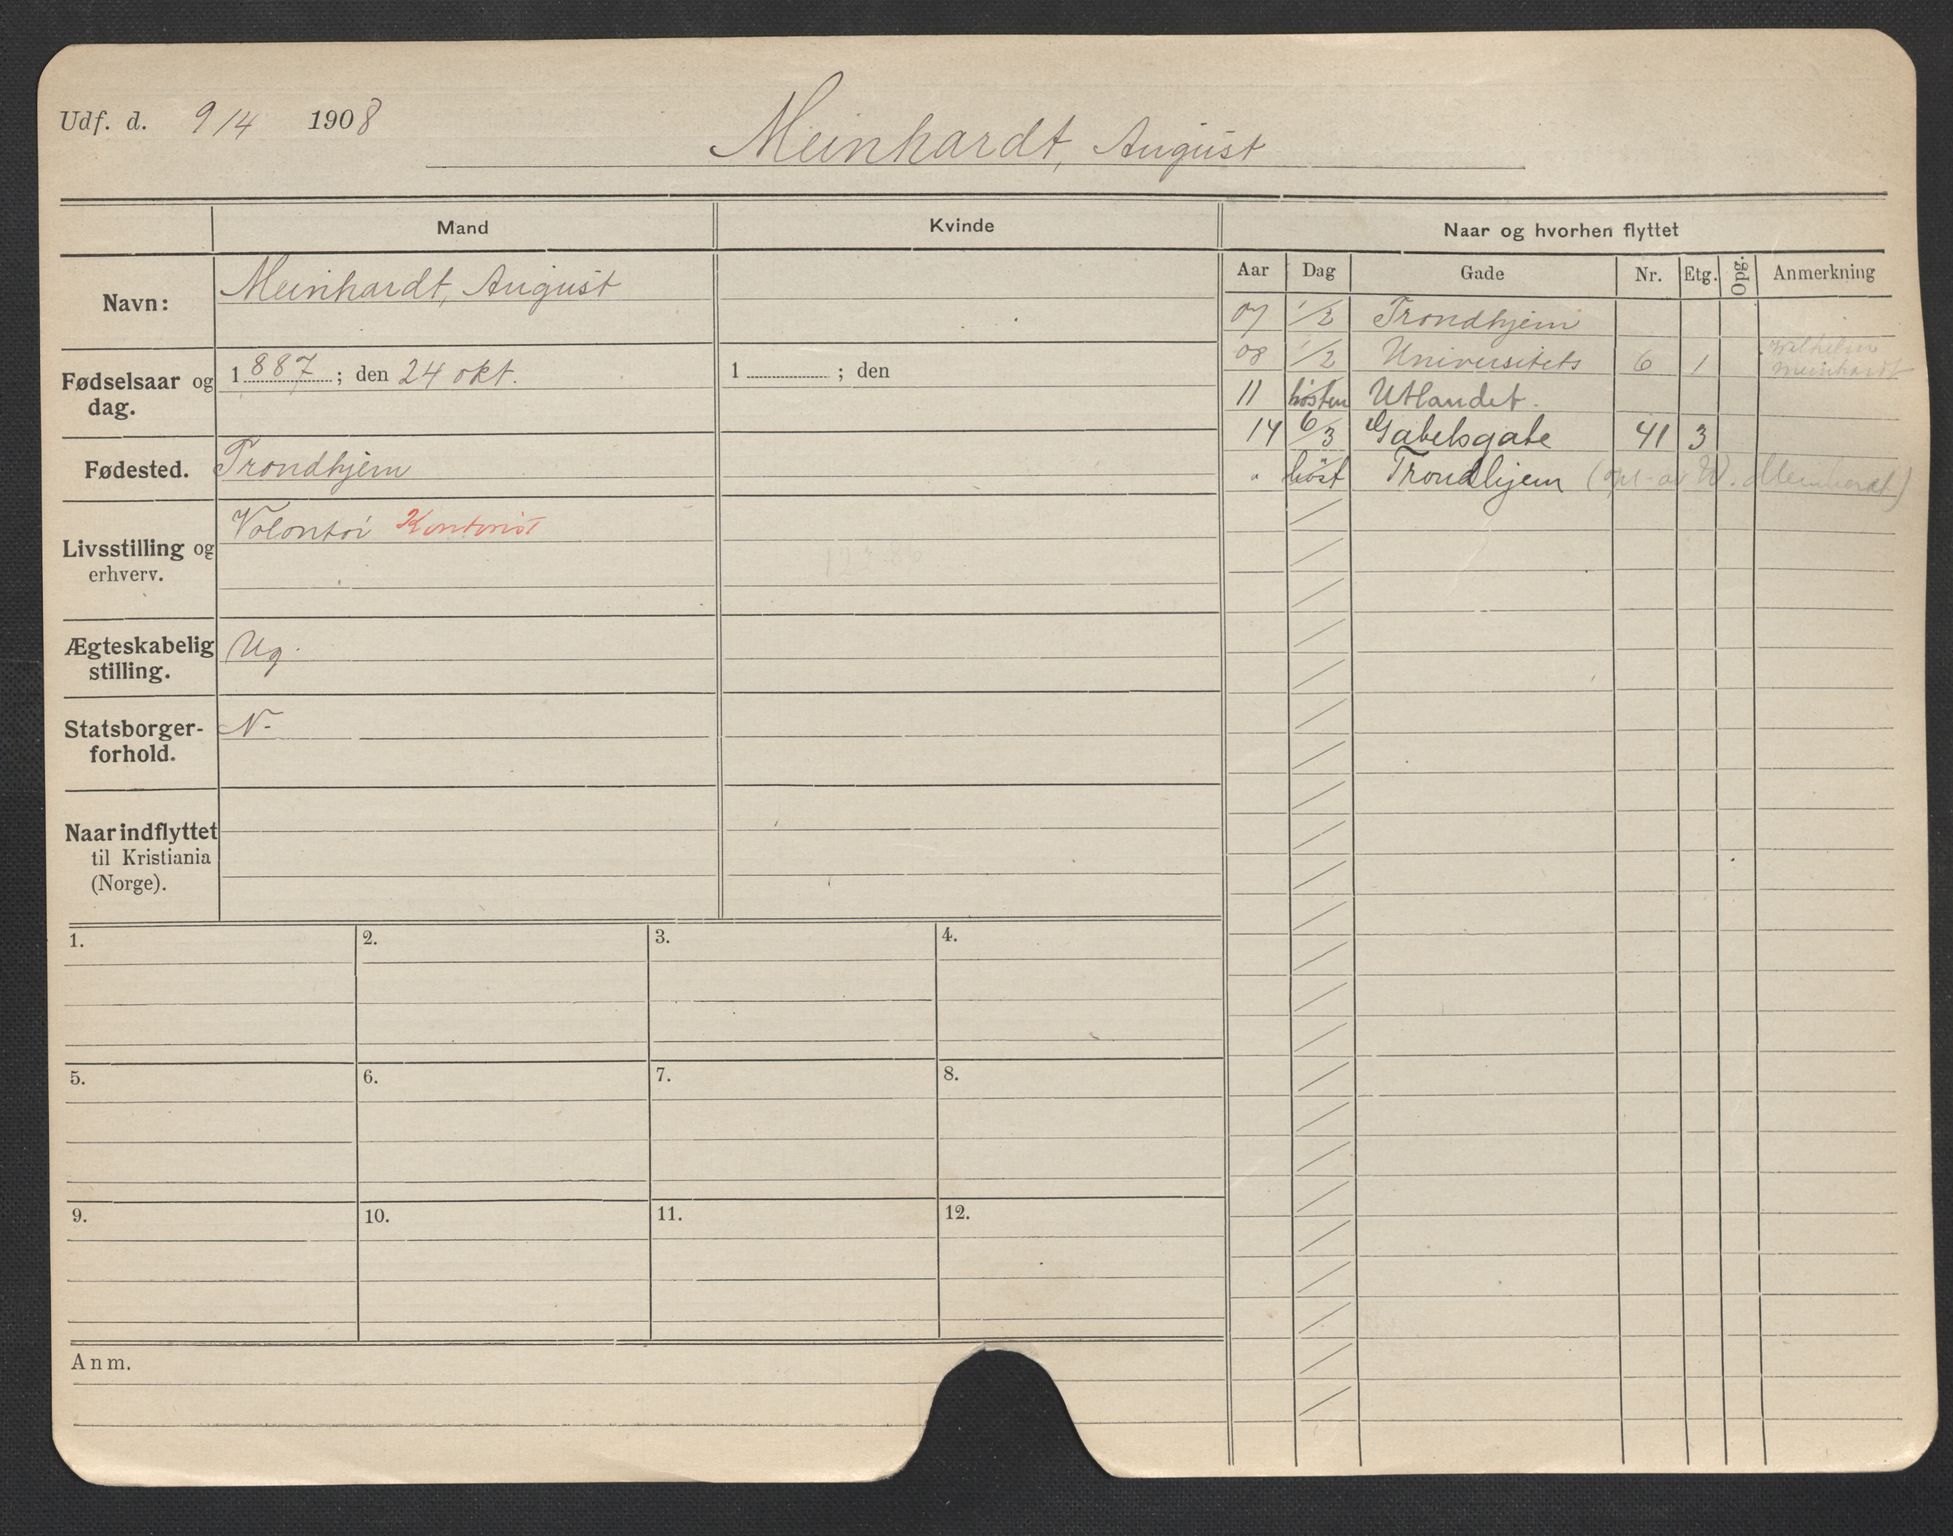 Udf. d. 9/4 1908
Meinhardt, August
Mand Kvinde Naar og hvorhen flyttet
Aar Dag Gade Nr. Etg. Opg. Anmerkning
Navn: Meinhardt, August
Fødselsaar og dag. 1887; den 24 okt. 1 ; den
Fødested. Trondhjem
Livsstilling og erhverv. Volontør Kontorist
Ægteskabelig stilling. Ug.
Statsborger-forhold. N.
Naar indflyttet
til Kristiania
(Norge).
07 1/2 Trondhjem
08 1/2 Universitets 6 1 Wilhelm Meinhardt
11 høsten Utlandet.
14 6/3 Gabelsgate 41 3
" høst Trondhjem (opl. av W. Meinhardt)
1. 2. 3. 4.
5. 6. 7. 8.
9. 10. 11. 12.
Anm.